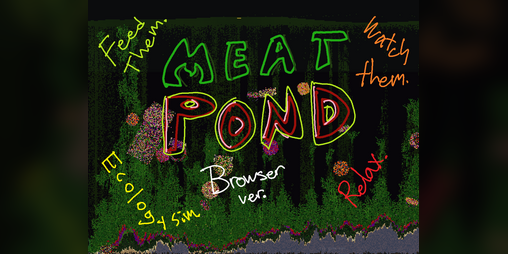 Feed
Them.
MEAT
POND
Watch
them.
Ecology sim
Browser
ver.
Relax.